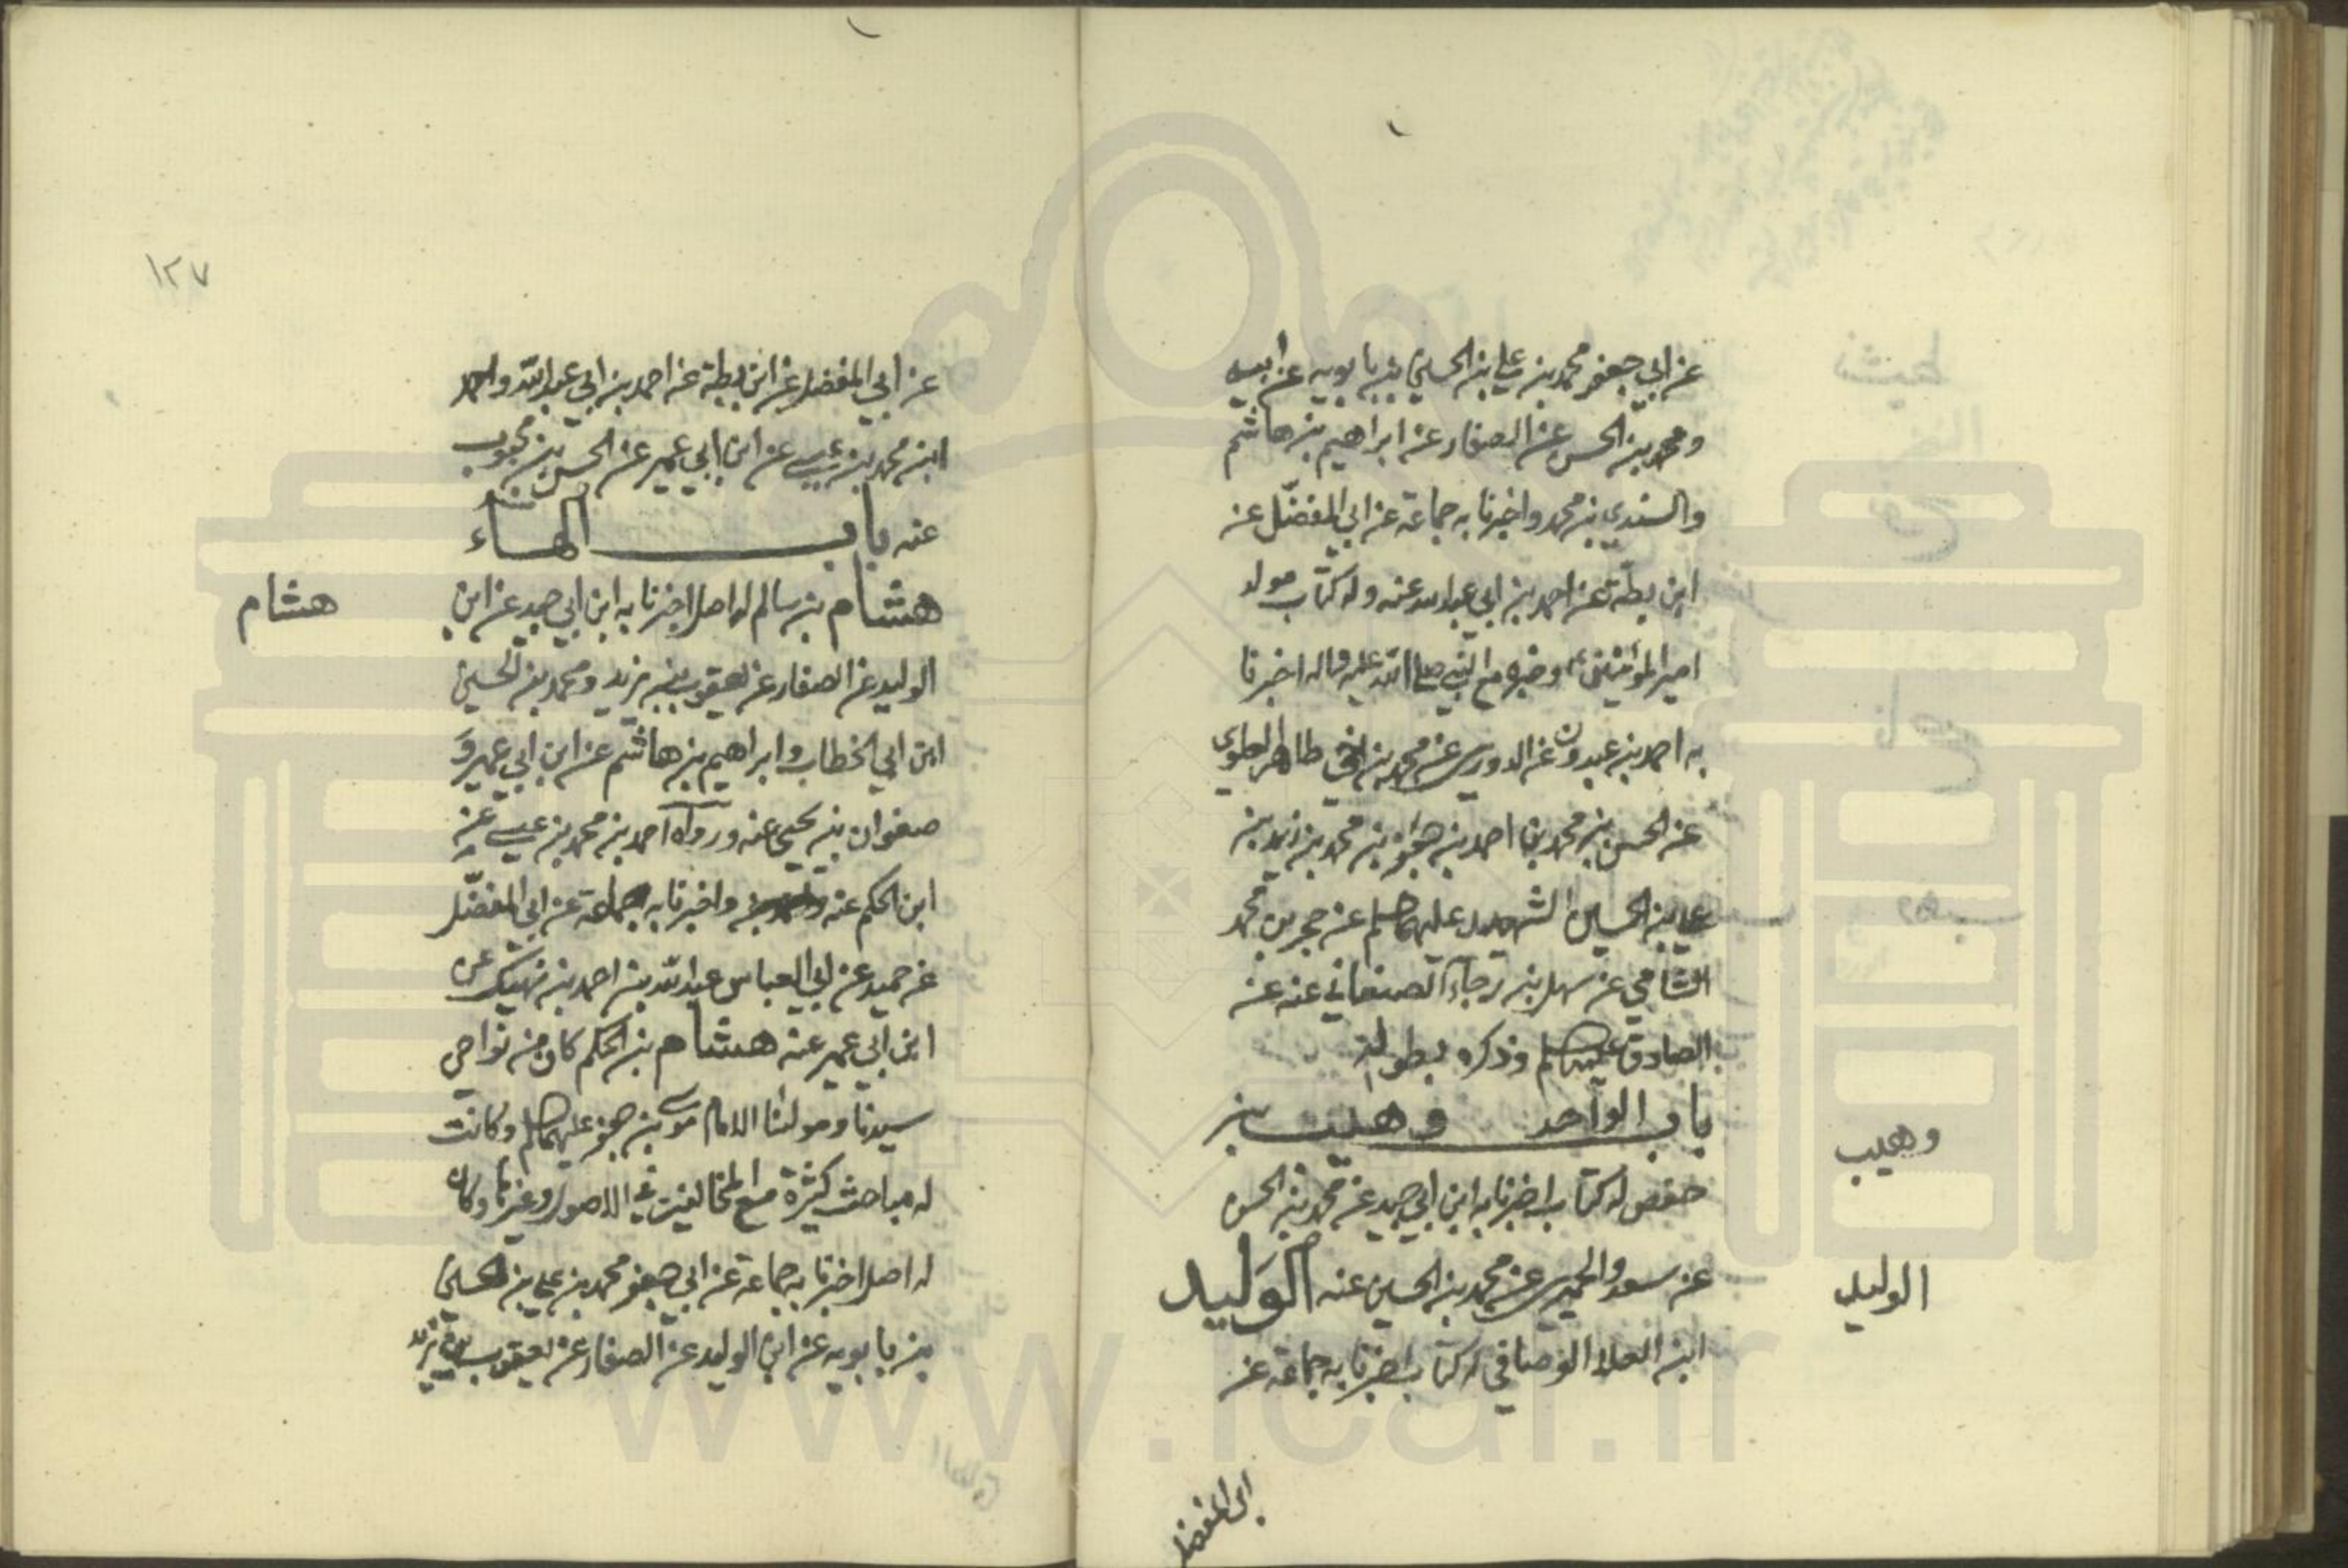 عن ابي جعفر محمد بن علي بن الحسين بن بابويه عن ابيه
ومحمد بن الحسن عن الصفار عن ابراهيم بن هاشم
والسندي بن محمد واخبرنا به جماعة عن ابي المفضّل عن
ابن بطّة عن احمد بن ابي عبد الله عنه وله كتاب مولد
امير المؤمنين وخبره مع النبي صلى الله عليه واله اخبرنا
به احمد بن عبدون عن الدوري عن محمد بن اخي طاهر العلوي
عن الحسن بن محمد بن احمد بن جعفر بن محمد بن زيد بن
علي بن الحسين الشهيد عليهما عن حجر بن محمد
الشامي عن سهل بن رجاء الصنعاني عنه عن
الصادق وذكره بطوله
باب الواحد وهيب بن
حفص له كتاب اخبرنا به ابن ابي جيد عن محمد بن الحسن
عن سعد والحميري عن محمد بن الحسين عنه الوَليد
ابن العلاء الوصافي له كتاب اخبرنا به جماعة عن
ابي المفضل
وهيب
الوليد
١٢٧
عن ابي المفضل عن ابن بطة عن احمد بن ابي عبد اللّه واحمد
ابن محمد بن عيسى عن ابن ابي عمير عن الحسن بن محبوب
عنه باب الهاء
هشام بن سالم له اصل اخبرنا به ابن ابي جيد عن ابن
الوليد عن الصفار عن يعقوب بن يزيد ومحمد بن الحسين
ابن ابي الخطاب وابراهيم بن هاشم عن ابن ابي عمير وَ
صفوان بن يحيى عنه ورواه احمد بن محمد بن عيسى عن
ابن الحكم عنه واخبرنا به جماعة عن ابي المفضّل
عن حميد عن ابي العباس عبد اللّه بن احمد بن نهيك عن
ابن ابي عمير عنه هشام بن الحكم كان من نواحي
سيدنا ومولنا الامام موسى بن جعفر عليهما وكانت
له مباحث كثيرة مع المخالفين في الاصول وغيرها وكان
له اصل اخبرنا به جماعة عن ابي جعفر محمد بن علي بن الحسين
بن بابويه عن ابن الوليد عن الصفار عن يعقوب بن يزيد
هشام
www.ical.ir